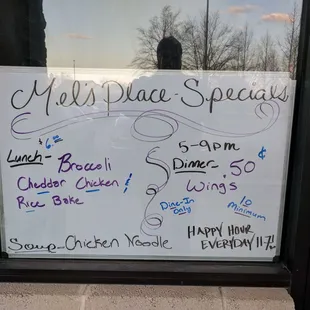 Mel's Place-Specials
$6.00
Lunch- Broccoli
Cheddar Chicken !
Rice Bake
5-9pm
Dinner- 50¢
Wings
Dine-In Only
10 Minimum
Soup-Chicken Noodle
HAPPY HOUR
EVERYDAY 11-7!